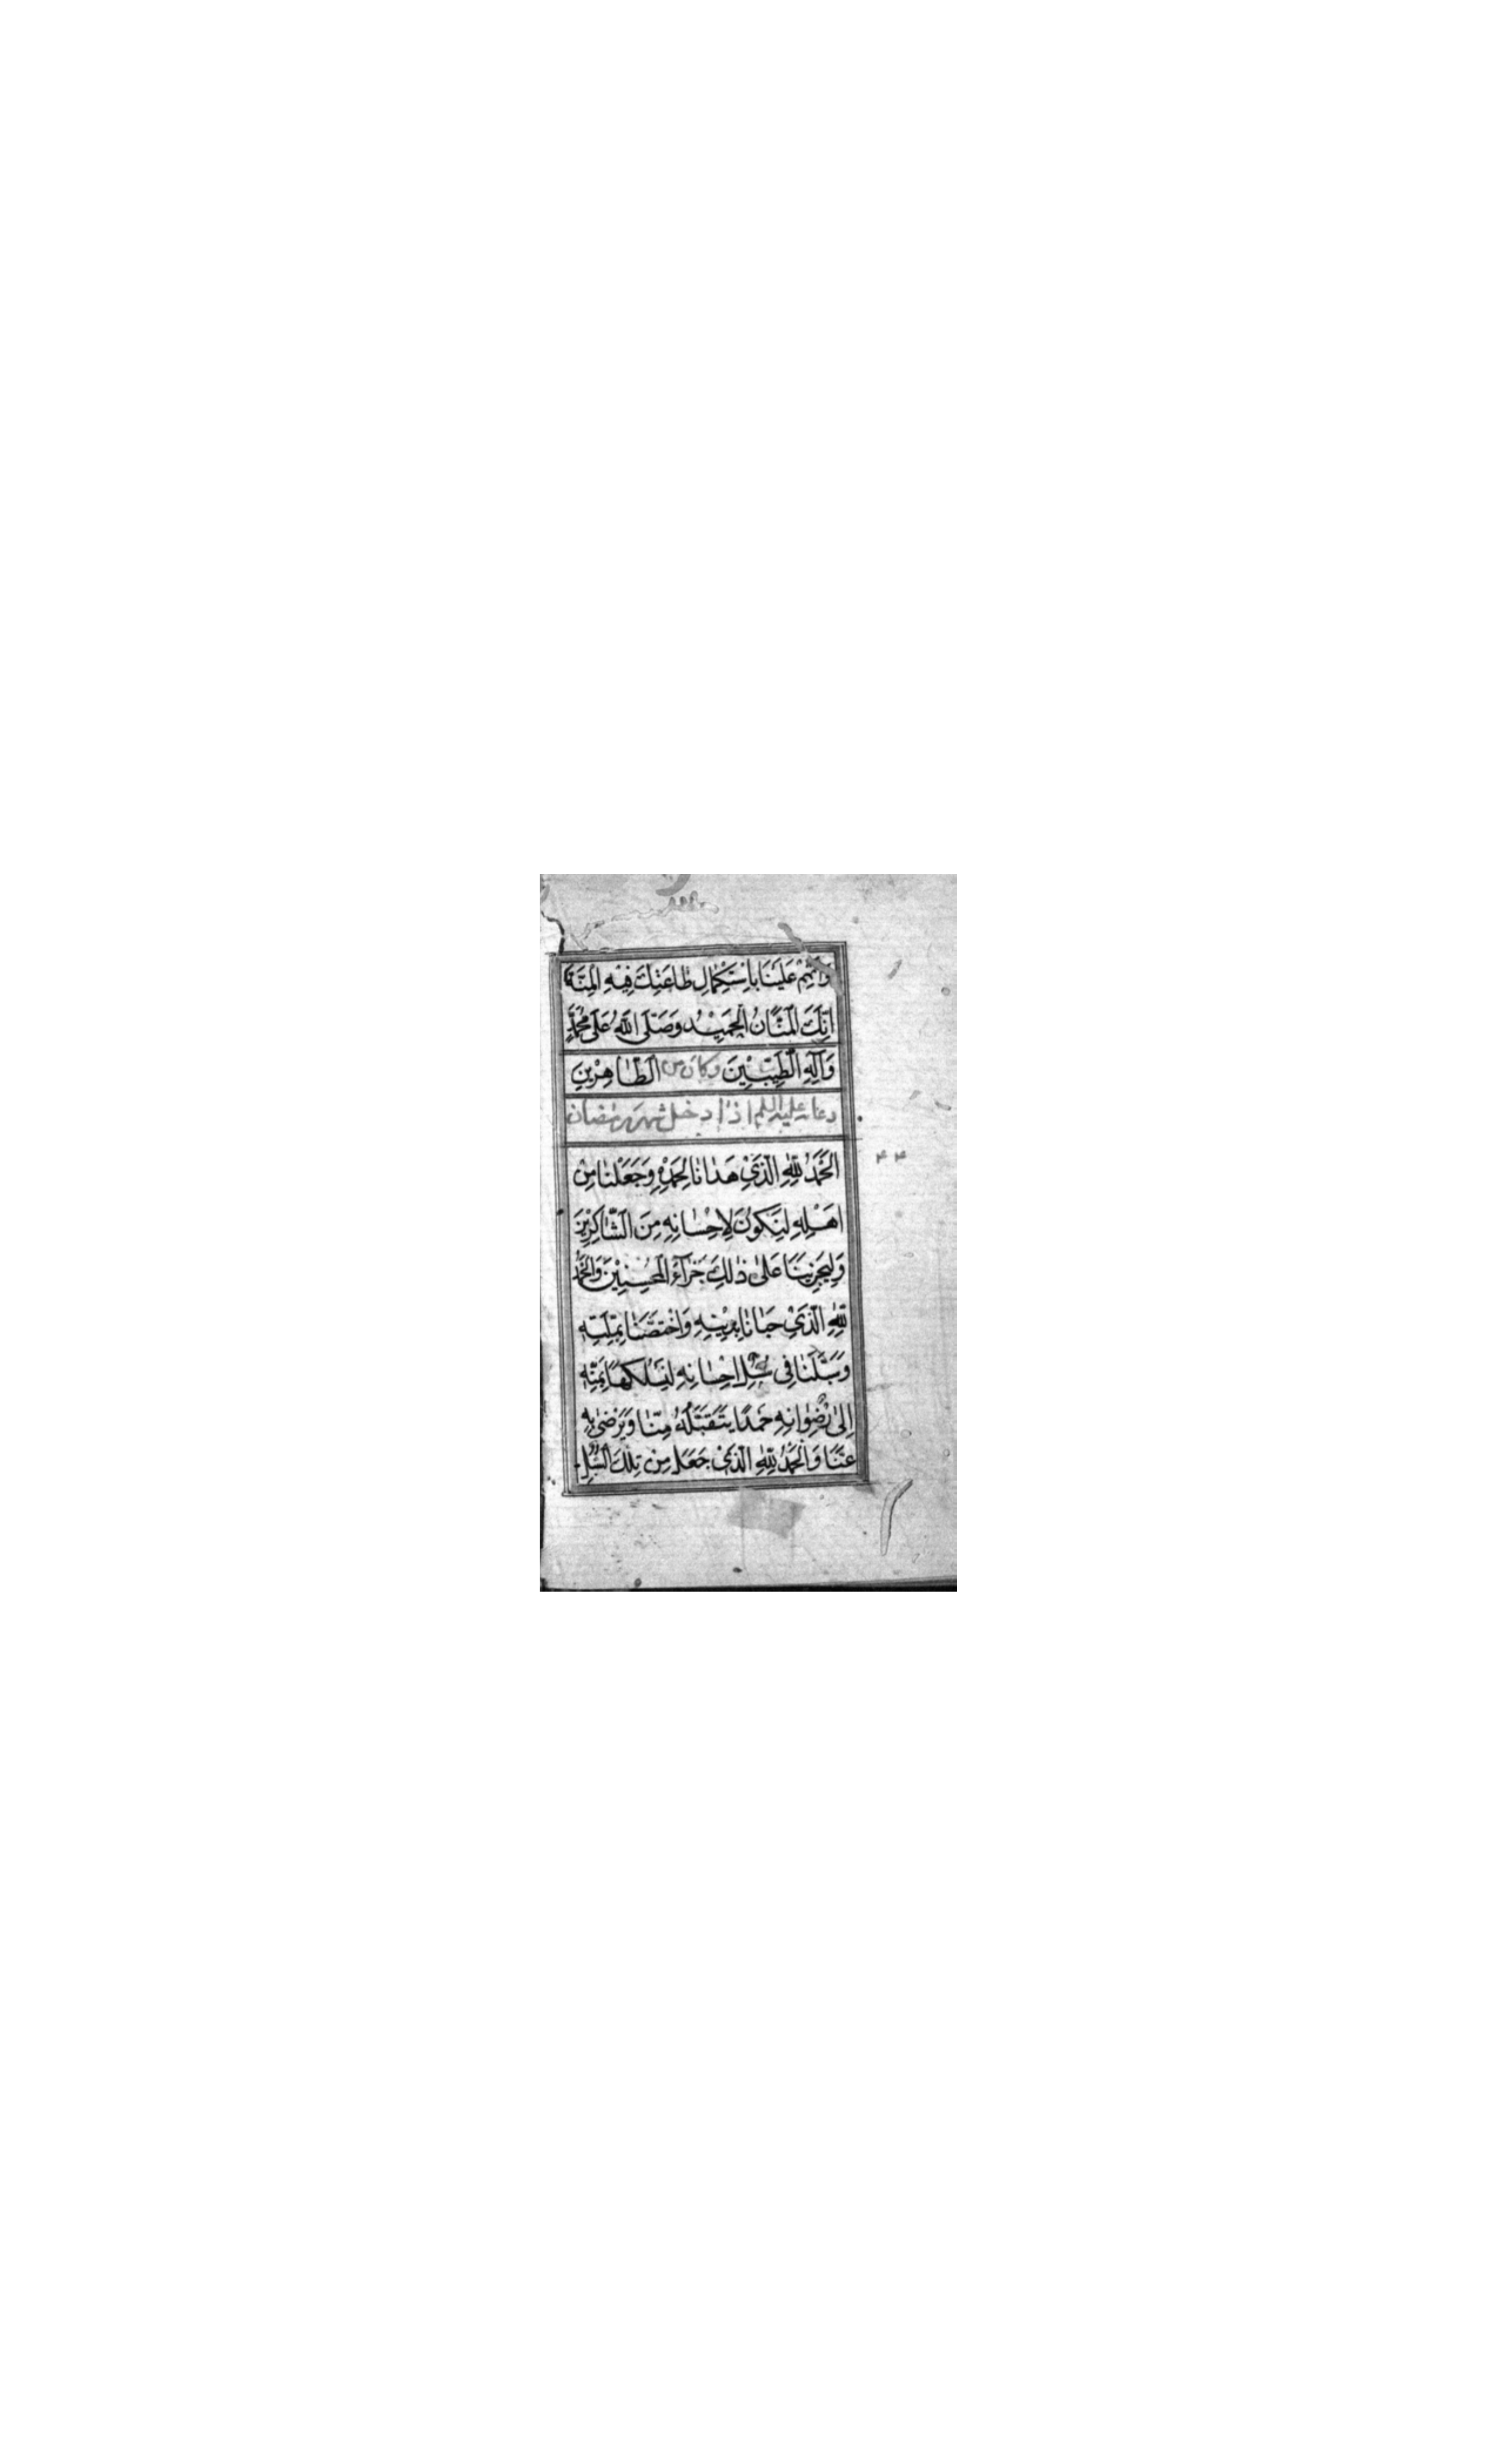 وَاَتْمِمْ عَلَيْنَا بِاسْتِكْمَالِ طَاعَتِكَ فِيْهِ الْمِنَّةَ
اِنَّكَ الْمَنَّانُ الْحَمِيْدُ وَصَلَّى اللّٰهُ عَلٰى مُحَمَّدٍ
وَآلِهِ الطَّيِّبِيْنَ وكان من الطَّاهِرِيْنَ
دعائه عليه السلم اذا دخل شهر رمضان
۴۴
اَلْحَمْدُ لِلّٰهِ الَّذِيْ هَدَانَا لِحَمْدِهِ وَجَعَلْنَا مِنْ
اَهْلِهِ لِنَكُوْنَ لِاِحْسَانِهِ مِنَ الشَّاكِرِيْنَ
وَلِيَجْزِيَنَا عَلٰى ذٰلِكَ جَزَآءَ الْمُحْسِنِيْنَ وَالْحَمْدُ
لِلّٰهِ الَّذِيْ حَبَانَا بِدِيْنِهِ وَاخْتَصَّنَا بِمِلَّتِهِ
وَسَبَّلَنَا فِي سُبُلِ اِحْسَانِهِ لِنَسْلُكَهَا بِمَنِّهِ
اِلٰى رِضْوَانِهِ حَمْدًا يَتَقَبَّلُهُ مِنَّا وَيَرْضٰى بِهِ
عَنَّا وَالْحَمْدُ لِلّٰهِ الَّذِيْ جَعَلَ مِنْ تِلْكَ السُّبُلِ